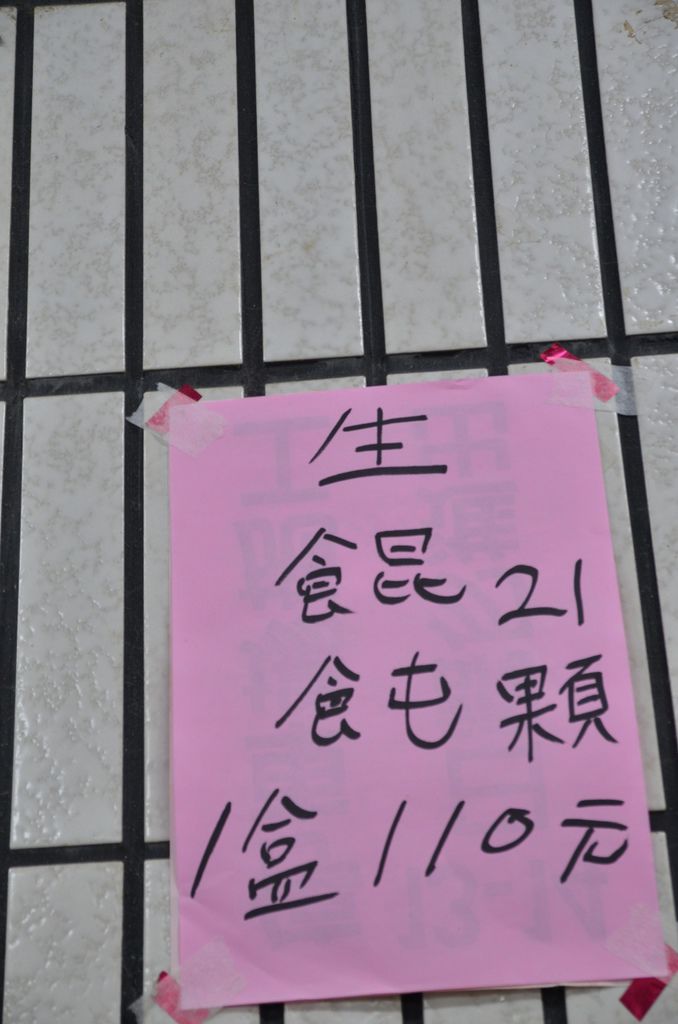 生
餛 21
飩 顆
1盒110元